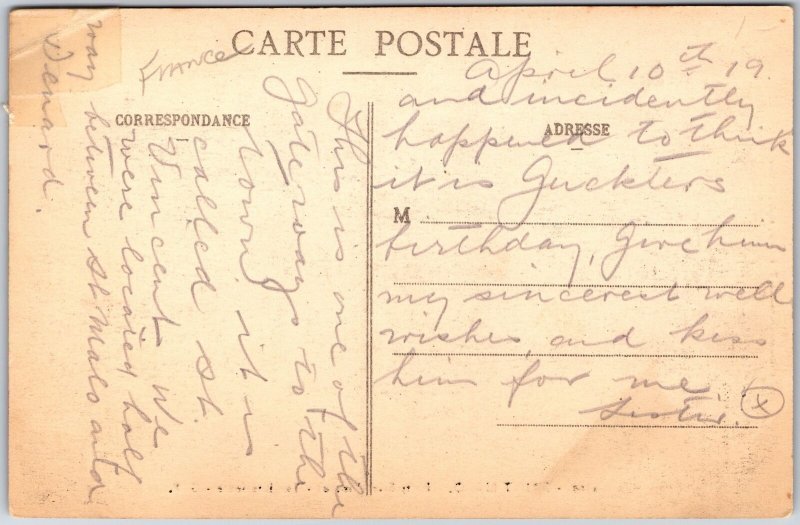 CARTE POSTALE
France
CORRESPONDANCE
This is one of the
gateways to the
town. it is
called St.
Vincent We
were located half
way between St Malo and
Denard.
ADRESSE
April 10th 19.
and incidently
happened to think
it is
M
birthday, Give him
my sincerest well
wishes and kiss
him for me.
X